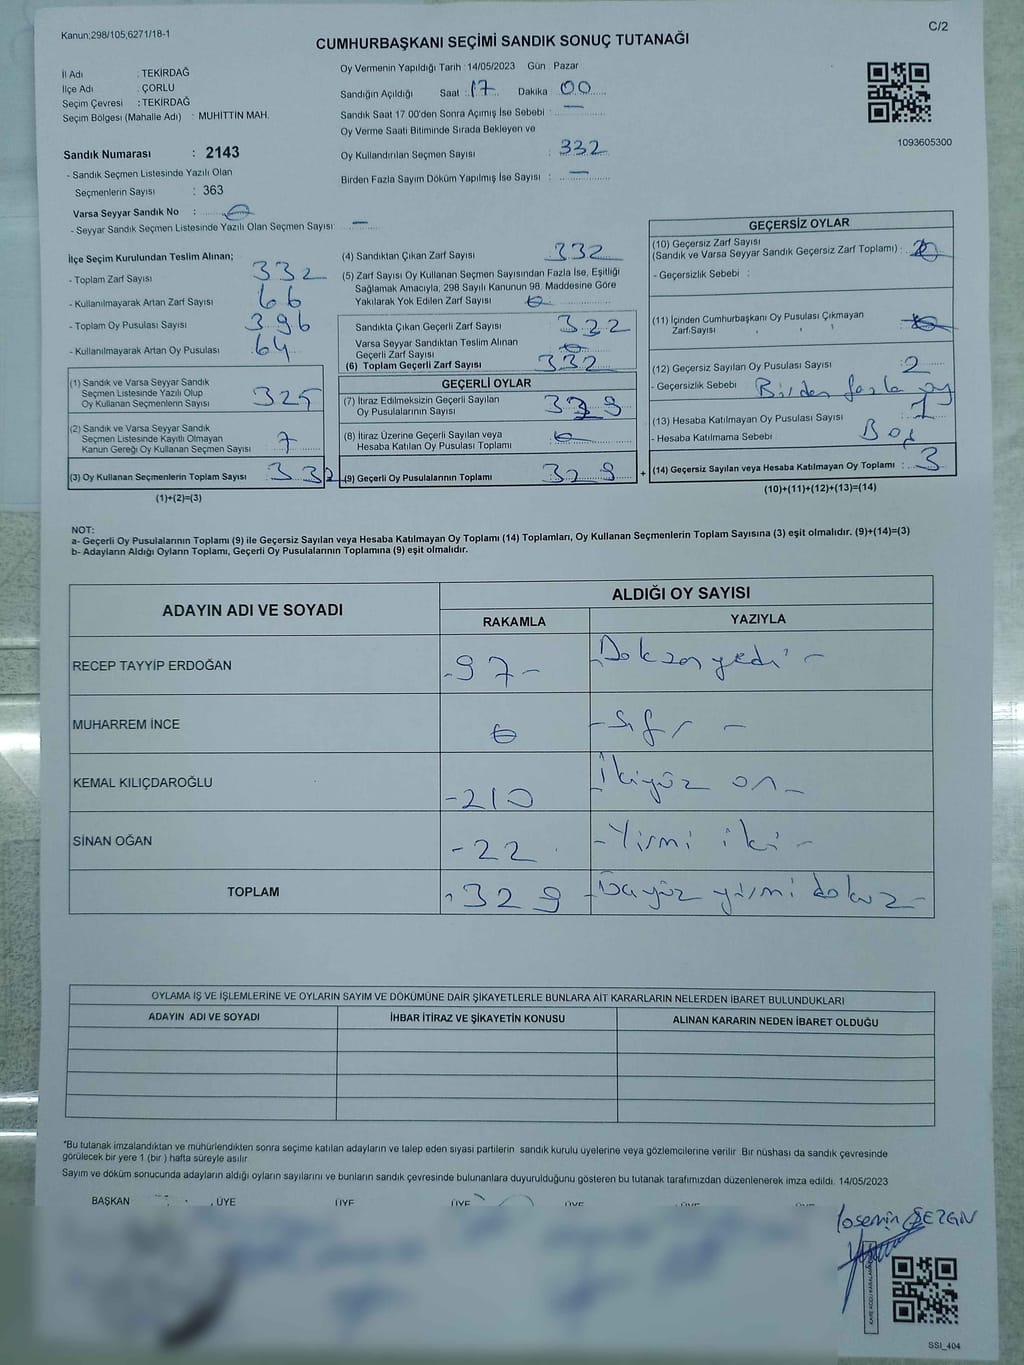 Kanun;298/105;6271/18-1
C/2
CUMHURBAŞKANI SEÇİMİ SANDIK SONUÇ TUTANAĞI
İl Adı : TEKİRDAĞ
İlçe Adı : ÇORLU
Seçim Çevresi : TEKİRDAĞ
Seçim Bölgesi (Mahalle Adı) : MUHİTTİN MAH.
Sandık Numarası : 2143
- Sandık Seçmen Listesinde Yazılı Olan
Seçmenlerin Sayısı : 363
Varsa Seyyar Sandık No : 0
- Seyyar Sandık Seçmen Listesinde Yazılı Olan Seçmen Sayısı: —
Oy Vermenin Yapıldığı Tarih :14/05/2023 Gün : Pazar
Sandığın Açıldığı Saat : 17 Dakika 00
Sandık Saat 17 00'den Sonra Açımış İse Sebebi : —
Oy Verme Saati Bitiminde Sırada Bekleyen ve
Oy Kullandırılan Seçmen Sayısı : 332
Birden Fazla Sayım Döküm Yapılmış İse Sayısı : —
1093605300
İlçe Seçim Kurulundan Teslim Alınan;
- Toplam Zarf Sayısı 332
- Kullanılmayarak Artan Zarf Sayısı 66
- Toplam Oy Pusulası Sayısı 396
- Kullanılmayarak Artan Oy Pusulası 64
(1) Sandık ve Varsa Seyyar Sandık
Seçmen Listesinde Yazılı Olup
Oy Kullanan Seçmenlerin Sayısı 325
(2) Sandık ve Varsa Seyyar Sandık
Seçmen Listesinde Kayıtlı Olmayan
Kanun Gereği Oy Kullanan Seçmen Sayısı 7
(3) Oy Kullanan Seçmenlerin Toplam Sayısı 332
(1)+(2)=(3)
(4) Sandıktan Çıkan Zarf Sayısı 332
(5) Zarf Sayısı Oy Kullanan Seçmen Sayısından Fazla İse, Eşitliği
Sağlamak Amacıyla, 298 Sayılı Kanunun 98. Maddesine Göre
Yakılarak Yok Edilen Zarf Sayısı : 0
Sandıkta Çıkan Geçerli Zarf Sayısı 332
Varsa Seyyar Sandıktan Teslim Alınan
Geçerli Zarf Sayısı 0
(6) Toplam Geçerli Zarf Sayısı 332
GEÇERLİ OYLAR
(7) İtiraz Edilmeksizin Geçerli Sayılan
Oy Pusulalarının Sayısı 329
(8) İtiraz Üzerine Geçerli Sayılan veya
Hesaba Katılan Oy Pusulası Toplamı 0
(9) Geçerli Oy Pusulalarının Toplamı 329
+
GEÇERSİZ OYLAR
(10) Geçersiz Zarf Sayısı
(Sandık ve Varsa Seyyar Sandık Geçersiz Zarf Toplamı) :
- Geçersizlik Sebebi :
(11) İçinden Cumhurbaşkanı Oy Pusulası Çıkmayan
Zarf Sayısı
(12) Geçersiz Sayılan Oy Pusulası Sayısı 2
- Geçersizlik Sebebi Birden fazla oy
(13) Hesaba Katılmayan Oy Pusulası Sayısı 1
- Hesaba Katılmama Sebebi : Boş
(14) Geçersiz Sayılan veya Hesaba Katılmayan Oy Toplamı : 3
(10)+(11)+(12)+(13)=(14)
NOT:
a- Geçerli Oy Pusulalarının Toplamı (9) ile Geçersiz Sayılan veya Hesaba Katılmayan Oy Toplamı (14) Toplamları, Oy Kullanan Seçmenlerin Toplam Sayısına (3) eşit olmalıdır. (9)+(14)=(3)
b- Adayların Aldığı Oyların Toplamı, Geçerli Oy Pusulalarının Toplamına (9) eşit olmalıdır.
ADAYIN ADI VE SOYADI
ALDIĞI OY SAYISI
RAKAMLA YAZIYLA
RECEP TAYYİP ERDOĞAN -97- -Doksan yedi-
MUHARREM İNCE 0 -sıfır-
KEMAL KILIÇDAROĞLU -210 -İkiyüz on-
SİNAN OĞAN -22 -Yirmi iki-
TOPLAM -329 -Üçyüz yirmi dokuz-
OYLAMA İŞ VE İŞLEMLERİNE VE OYLARIN SAYIM VE DÖKÜMÜNE DAİR ŞİKAYETLERLE BUNLARA AİT KARARLARIN NELERDEN İBARET BULUNDUKLARI
ADAYIN ADI VE SOYADI İHBAR İTİRAZ VE ŞİKAYETİN KONUSU ALINAN KARARIN NEDEN İBARET OLDUĞU
*Bu tutanak imzalandıktan ve mühürlendikten sonra seçime katılan adayların ve talep eden siyasi partilerin sandık kurulu üyelerine veya gözlemcilerine verilir. Bir nüshası da sandık çevresinde
görülecek bir yere 1 (bir) hafta süreyle asılır.
Sayım ve döküm sonucunda adayların aldığı oyların sayılarını ve bunların sandık çevresinde bulunanlara duyurulduğunu gösteren bu tutanak tarafımızdan düzenlenerek imza edildi. 14/05/2023
BAŞKAN ÜYE ÜYE ÜYE ÜYE ÜYE ÜYE
SEZGİN
SSİ_404